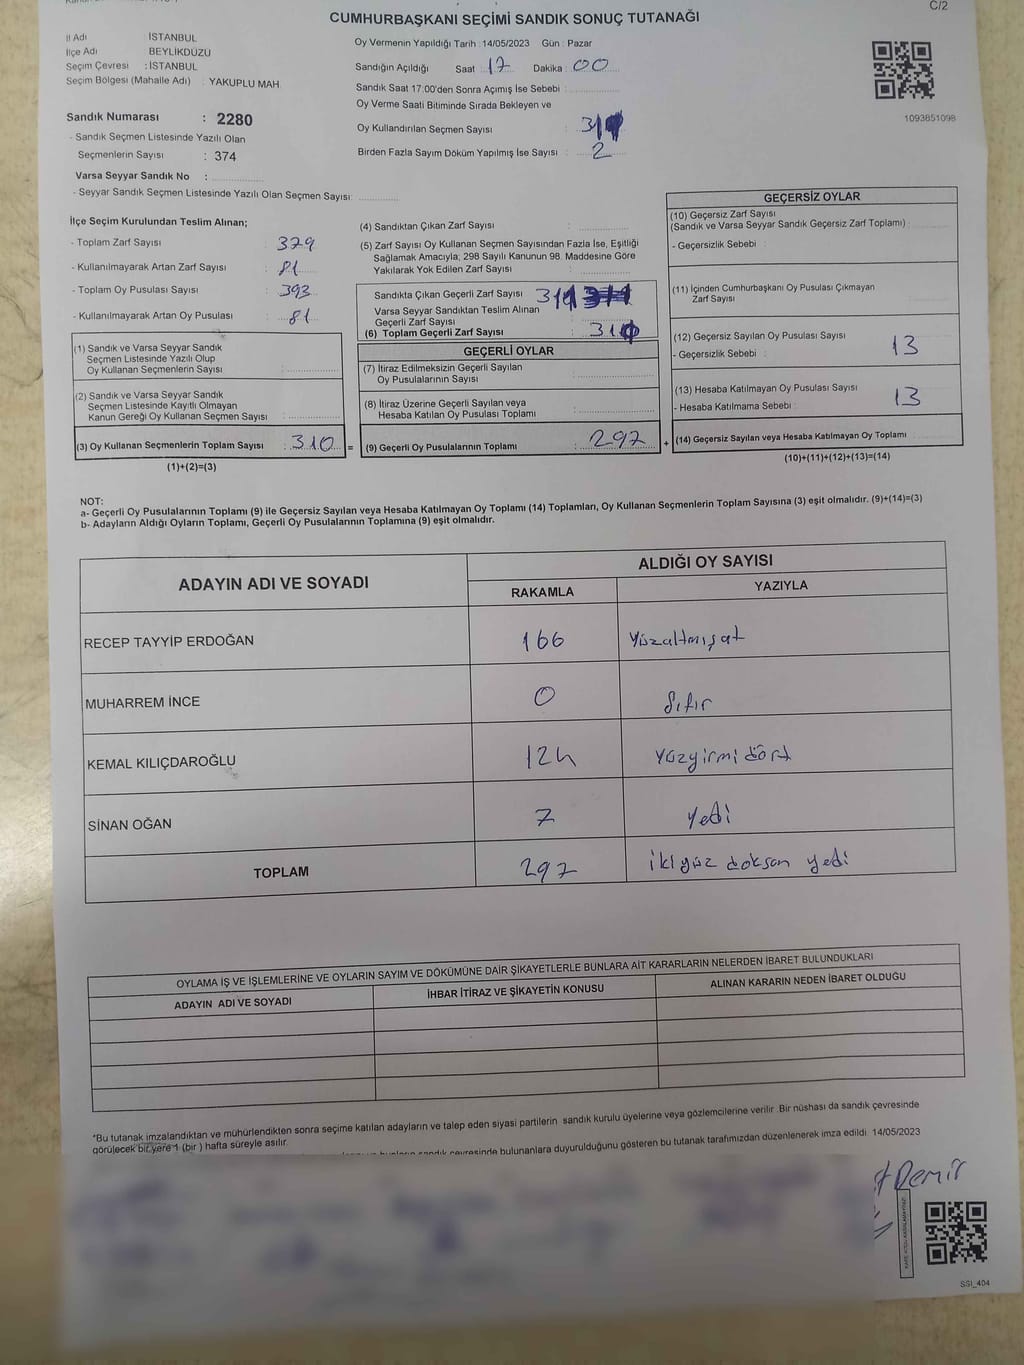 C/2
CUMHURBAŞKANI SEÇİMİ SANDIK SONUÇ TUTANAĞI
İl Adı İSTANBUL
İlçe Adı BEYLİKDÜZÜ
Seçim Çevresi : İSTANBUL
Seçim Bölgesi (Mahalle Adı) : YAKUPLU MAH
Oy Vermenin Yapıldığı Tarih : 14/05/2023 Gün : Pazar
Sandığın Açıldığı Saat : 17 Dakika : 00
Sandık Saat 17:00'den Sonra Açımış İse Sebebi :
Oy Verme Saati Bitiminde Sırada Bekleyen ve
Oy Kullandırılan Seçmen Sayısı :
Birden Fazla Sayım Döküm Yapılmış İse Sayısı : 2
1093851098
Sandık Numarası : 2280
- Sandık Seçmen Listesinde Yazılı Olan
Seçmenlerin Sayısı : 374
Varsa Seyyar Sandık No :
- Seyyar Sandık Seçmen Listesinde Yazılı Olan Seçmen Sayısı:
İlçe Seçim Kurulundan Teslim Alınan;
- Toplam Zarf Sayısı : 379
- Kullanılmayarak Artan Zarf Sayısı : 81
- Toplam Oy Pusulası Sayısı : 393
- Kullanılmayarak Artan Oy Pusulası : 81
(1) Sandık ve Varsa Seyyar Sandık
Seçmen Listesinde Yazılı Olup
Oy Kullanan Seçmenlerin Sayısı :
(2) Sandık ve Varsa Seyyar Sandık
Seçmen Listesinde Kayıtlı Olmayan
Kanun Gereği Oy Kullanan Seçmen Sayısı :
(3) Oy Kullanan Seçmenlerin Toplam Sayısı : 310 =
(1)+(2)=(3)
(4) Sandıktan Çıkan Zarf Sayısı :
(5) Zarf Sayısı Oy Kullanan Seçmen Sayısından Fazla İse, Eşitliği
Sağlamak Amacıyla; 298 Sayılı Kanunun 98. Maddesine Göre
Yakılarak Yok Edilen Zarf Sayısı :
Sandıkta Çıkan Geçerli Zarf Sayısı
Varsa Seyyar Sandıktan Teslim Alınan
Geçerli Zarf Sayısı
(6) Toplam Geçerli Zarf Sayısı : 310
GEÇERLİ OYLAR
(7) İtiraz Edilmeksizin Geçerli Sayılan
Oy Pusulalarının Sayısı :
(8) İtiraz Üzerine Geçerli Sayılan veya
Hesaba Katılan Oy Pusulası Toplamı :
(9) Geçerli Oy Pusulalarının Toplamı : 297 +
GEÇERSİZ OYLAR
(10) Geçersiz Zarf Sayısı
(Sandık ve Varsa Seyyar Sandık Geçersiz Zarf Toplamı) :
- Geçersizlik Sebebi :
(11) İçinden Cumhurbaşkanı Oy Pusulası Çıkmayan
Zarf Sayısı
(12) Geçersiz Sayılan Oy Pusulası Sayısı 13
- Geçersizlik Sebebi :
(13) Hesaba Katılmayan Oy Pusulası Sayısı 13
- Hesaba Katılmama Sebebi :
(14) Geçersiz Sayılan veya Hesaba Katılmayan Oy Toplamı
(10)+(11)+(12)+(13)=(14)
NOT:
a- Geçerli Oy Pusulalarının Toplamı (9) ile Geçersiz Sayılan veya Hesaba Katılmayan Oy Toplamı (14) Toplamları, Oy Kullanan Seçmenlerin Toplam Sayısına (3) eşit olmalıdır. (9)+(14)=(3)
b- Adayların Aldığı Oyların Toplamı, Geçerli Oy Pusulalarının Toplamına (9) eşit olmalıdır.
ADAYIN ADI VE SOYADI ALDIĞI OY SAYISI
RAKAMLA YAZIYLA
RECEP TAYYİP ERDOĞAN 166 Yüzaltmışat
MUHARREM İNCE 0 Sıfır
KEMAL KILIÇDAROĞLU 124 Yüzyirmi dört
SİNAN OĞAN 7 Yedi
TOPLAM 297 ikiyüz doksan yedi
OYLAMA İŞ VE İŞLEMLERİNE VE OYLARIN SAYIM VE DÖKÜMÜNE DAİR ŞİKAYETLERLE BUNLARA AİT KARARLARIN NELERDEN İBARET BULUNDUKLARI
ADAYIN ADI VE SOYADI İHBAR İTİRAZ VE ŞİKAYETİN KONUSU ALINAN KARARIN NEDEN İBARET OLDUĞU
*Bu tutanak imzalandıktan ve mühürlendikten sonra seçime katılan adayların ve talep eden siyasi partilerin sandık kurulu üyelerine veya gözlemcilerine verilir .Bir nüshası da sandık çevresinde
görülecek bir yere 1 (bir ) hafta süreyle asılır.
sandık çevresinde bulunanlara duyurulduğunu gösteren bu tutanak tarafımızdan düzenlenerek imza edildi. 14/05/2023
Demir
SSI_404